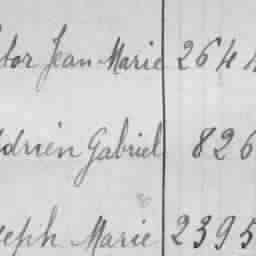 Jean Marie 264
Adrien Gabriel 826
Joseph Marie 2395